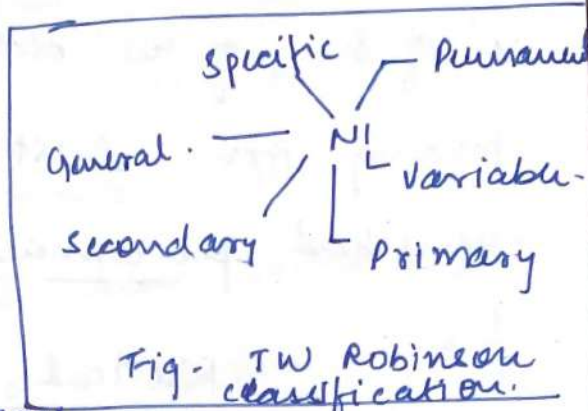 Specific Permanen
General. NI
Variable.
Secondary Primary
Fig- TW Robinson
classification.